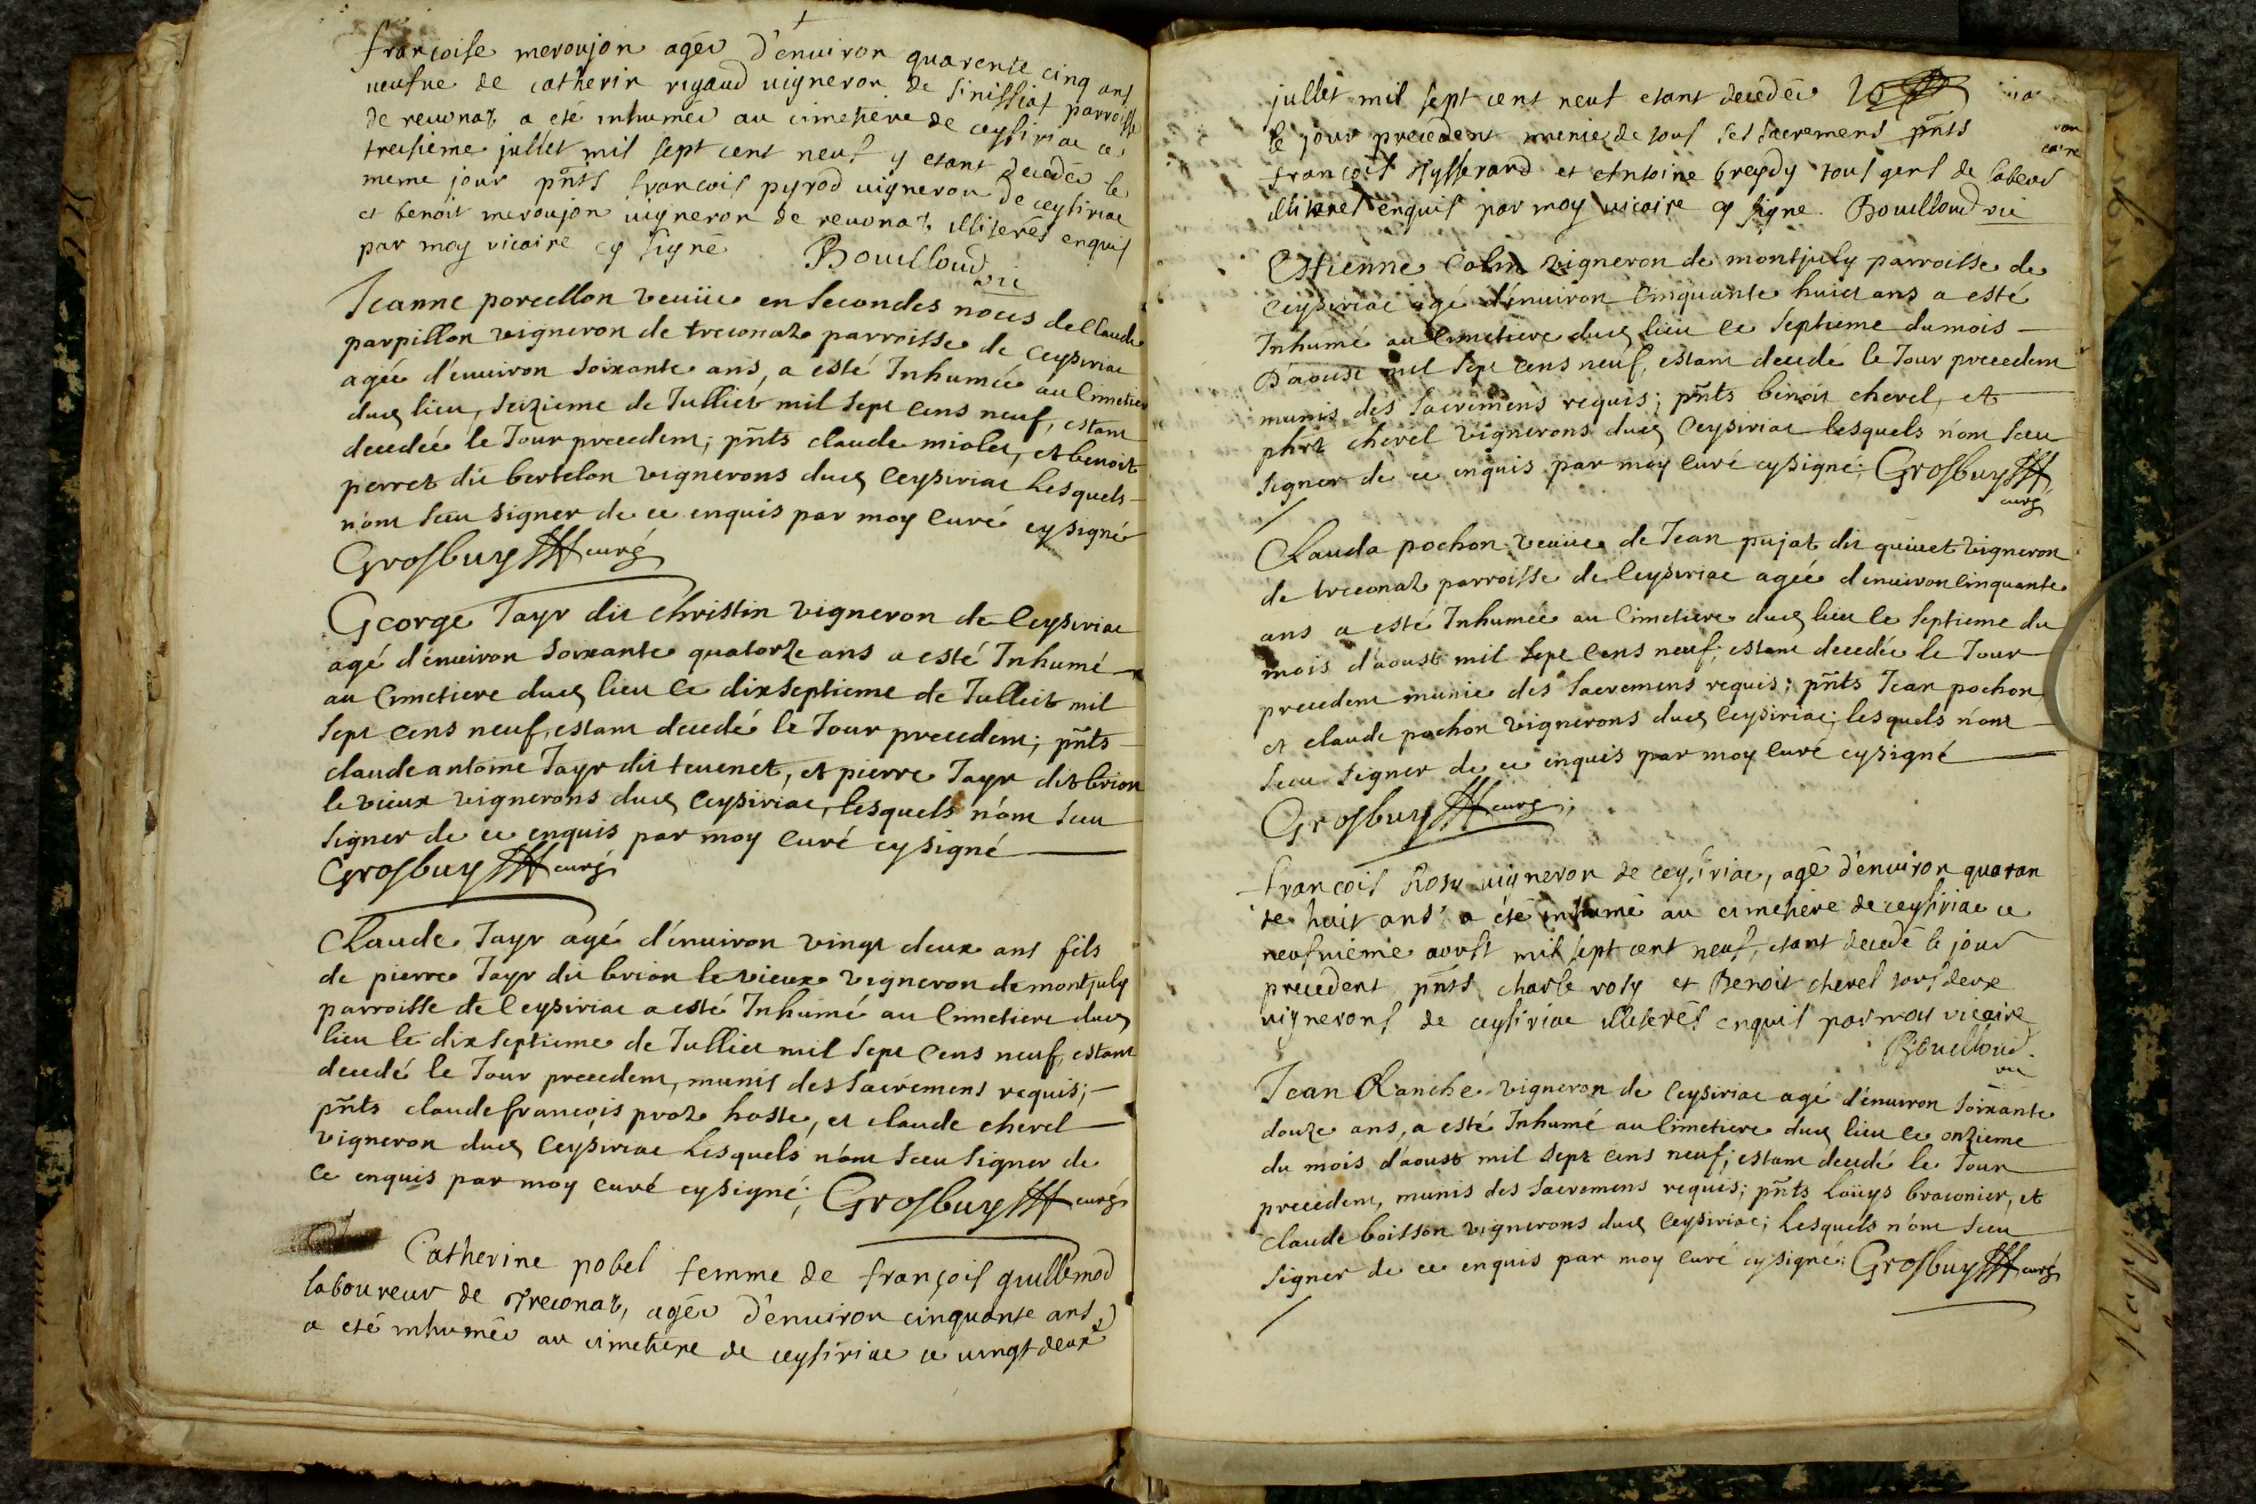 françoise meroujon agée d'enuiron quarente cinq ans
ueufue de catherin rigaud uigneron de sinissiat parroisse
de reuonaz a eté inhumée au cimetiere de ceysiriac ce
treisieme jullet mil sept cent neuf y etant decedée le
meme jour pnts francois pyrod uigneron de ceysiriac
et benoit meroujon uigneron de reuonaz illiterés enquis
par moy vicaire cy signé Bouilloud
vic
Jeanne porcellon veuüe en secondes noces de Claude
parpillon vigneron de treconaz parroisse de Ceysiriac
agée d'enuiron soixante ans, a esté Inhumée au Cimetiere
dud lieu, seizieme de Julliet mil sept cens neuf, estant
decedée le Jour precedent; pnts claude miolet, et benoit
perret dit bertelon vignerons dud Ceysiriac lesquels
n'ont sceu signer de ce enquis par moy Curé cy signé
Grosbuy curé
George Jayr dit christin vigneron de Ceysiriac
agé d'enuiron soixante quatorze ans a esté Inhumé
au Cimetiere dud lieu le dixseptieme de Julleit mil
sept cens neuf, estant decedé le Jour precedent; pnts
claude antoine Jayr dit teuenet, et pierre Jayr dit brion
le vieux vignerons dud Ceysiriac, lesquels n'ont sceu
signer de ce enquis par moy Curé cy signé
Grosbuy curé
Claude Jayr agé d'enuiron vingt deux ans fils
de pierre Jayr dit brion le vieux vigneron de montjuly
parroisse de Ceysiriac a esté Inhumé au Cimetiere dud
lieu le dixseptieme de Julliet mil sept cens neuf, estant
decedé le Jour precedent, munis des sacremens requis;
pnts claude françois proz hoste, et claude cherel
vigneron dud Ceysiriac lesquels n'ont sceu signer de
ce enquis par moy curé cy signé; Grosbuy curé
Catherine pobel femme de françois guillemod
laboureur de Treconaz, agée d'enuiron cinquante ans
a eté inhumée au cimetiere de ceysiriac ce uingt deux
jullet mil sept cent neuf etant decedée
le jour precedent munie de tous ses sacremens pnts
françois Tysserand et Antoine breydy tous gens de labeur
illiterés enquis par moy uicaire cy signe. Bouilloud vic
Estienne Colin vigneron de montjuly parroisse de
Ceysiriac agé d'enuiron Cinquante huict ans a esté
Inhumé au Cimetiere dud lieu le septieme du mois
D'aoust mil sept cens neuf, estant decedé le Jour precedent
munis des sacremens requis; pnts benoit cherel, et
phrt cherel vignerons dud Ceysiriac lesquels n'ont sceu
signer de ce enquis par moy Curé cy signé; Grosbuy
curé
Clauda pochon veuüe de Jean pujat dit quiuet vigneron
de treconaz parroisse de Ceysiriac agée d'enuiron Cinquante
ans a esté Inhumée au Cimetiere dud lieu le septieme du
mois d'aoust mil sept cens neuf; estant decedée le Jour
precedent munie des sacremens requis; pnts Jean pochon
et claude pochon vignerons dud Ceysiriac; lesquels n'ont
sceu signer de ce enquis par moy Curé cy signé
Grosbuy curé;
françois Rosy uigneron de ceysiriac, agé d'enuiron quaran
te huit ans a été inhumé au cimetiere de ceysiriac ce
neufuieme aoust mil sept cent neuf, etant decedé le jour
precedent pnts charle rosy et Benoit cherel tous deux
uignerons de ceysiriac illiterés enquis par moy vicaire
Bouilloud.
vic
Jean Ranche vigneron de Ceysiriac agé d'enuiron soixante
douze ans, a esté Inhumé au Cimetiere dud lieu le onzieme
du mois d'aoust mil sept cens neuf; estant decedé le Jour
precedent, munis des sacremens requis; pnts Loüys braconier, et
claude boisson vignerons dud Ceysiriac; lesquels n'ont sceu
signer de ce enquis par moy Curé cy signé: Grosbuy curé